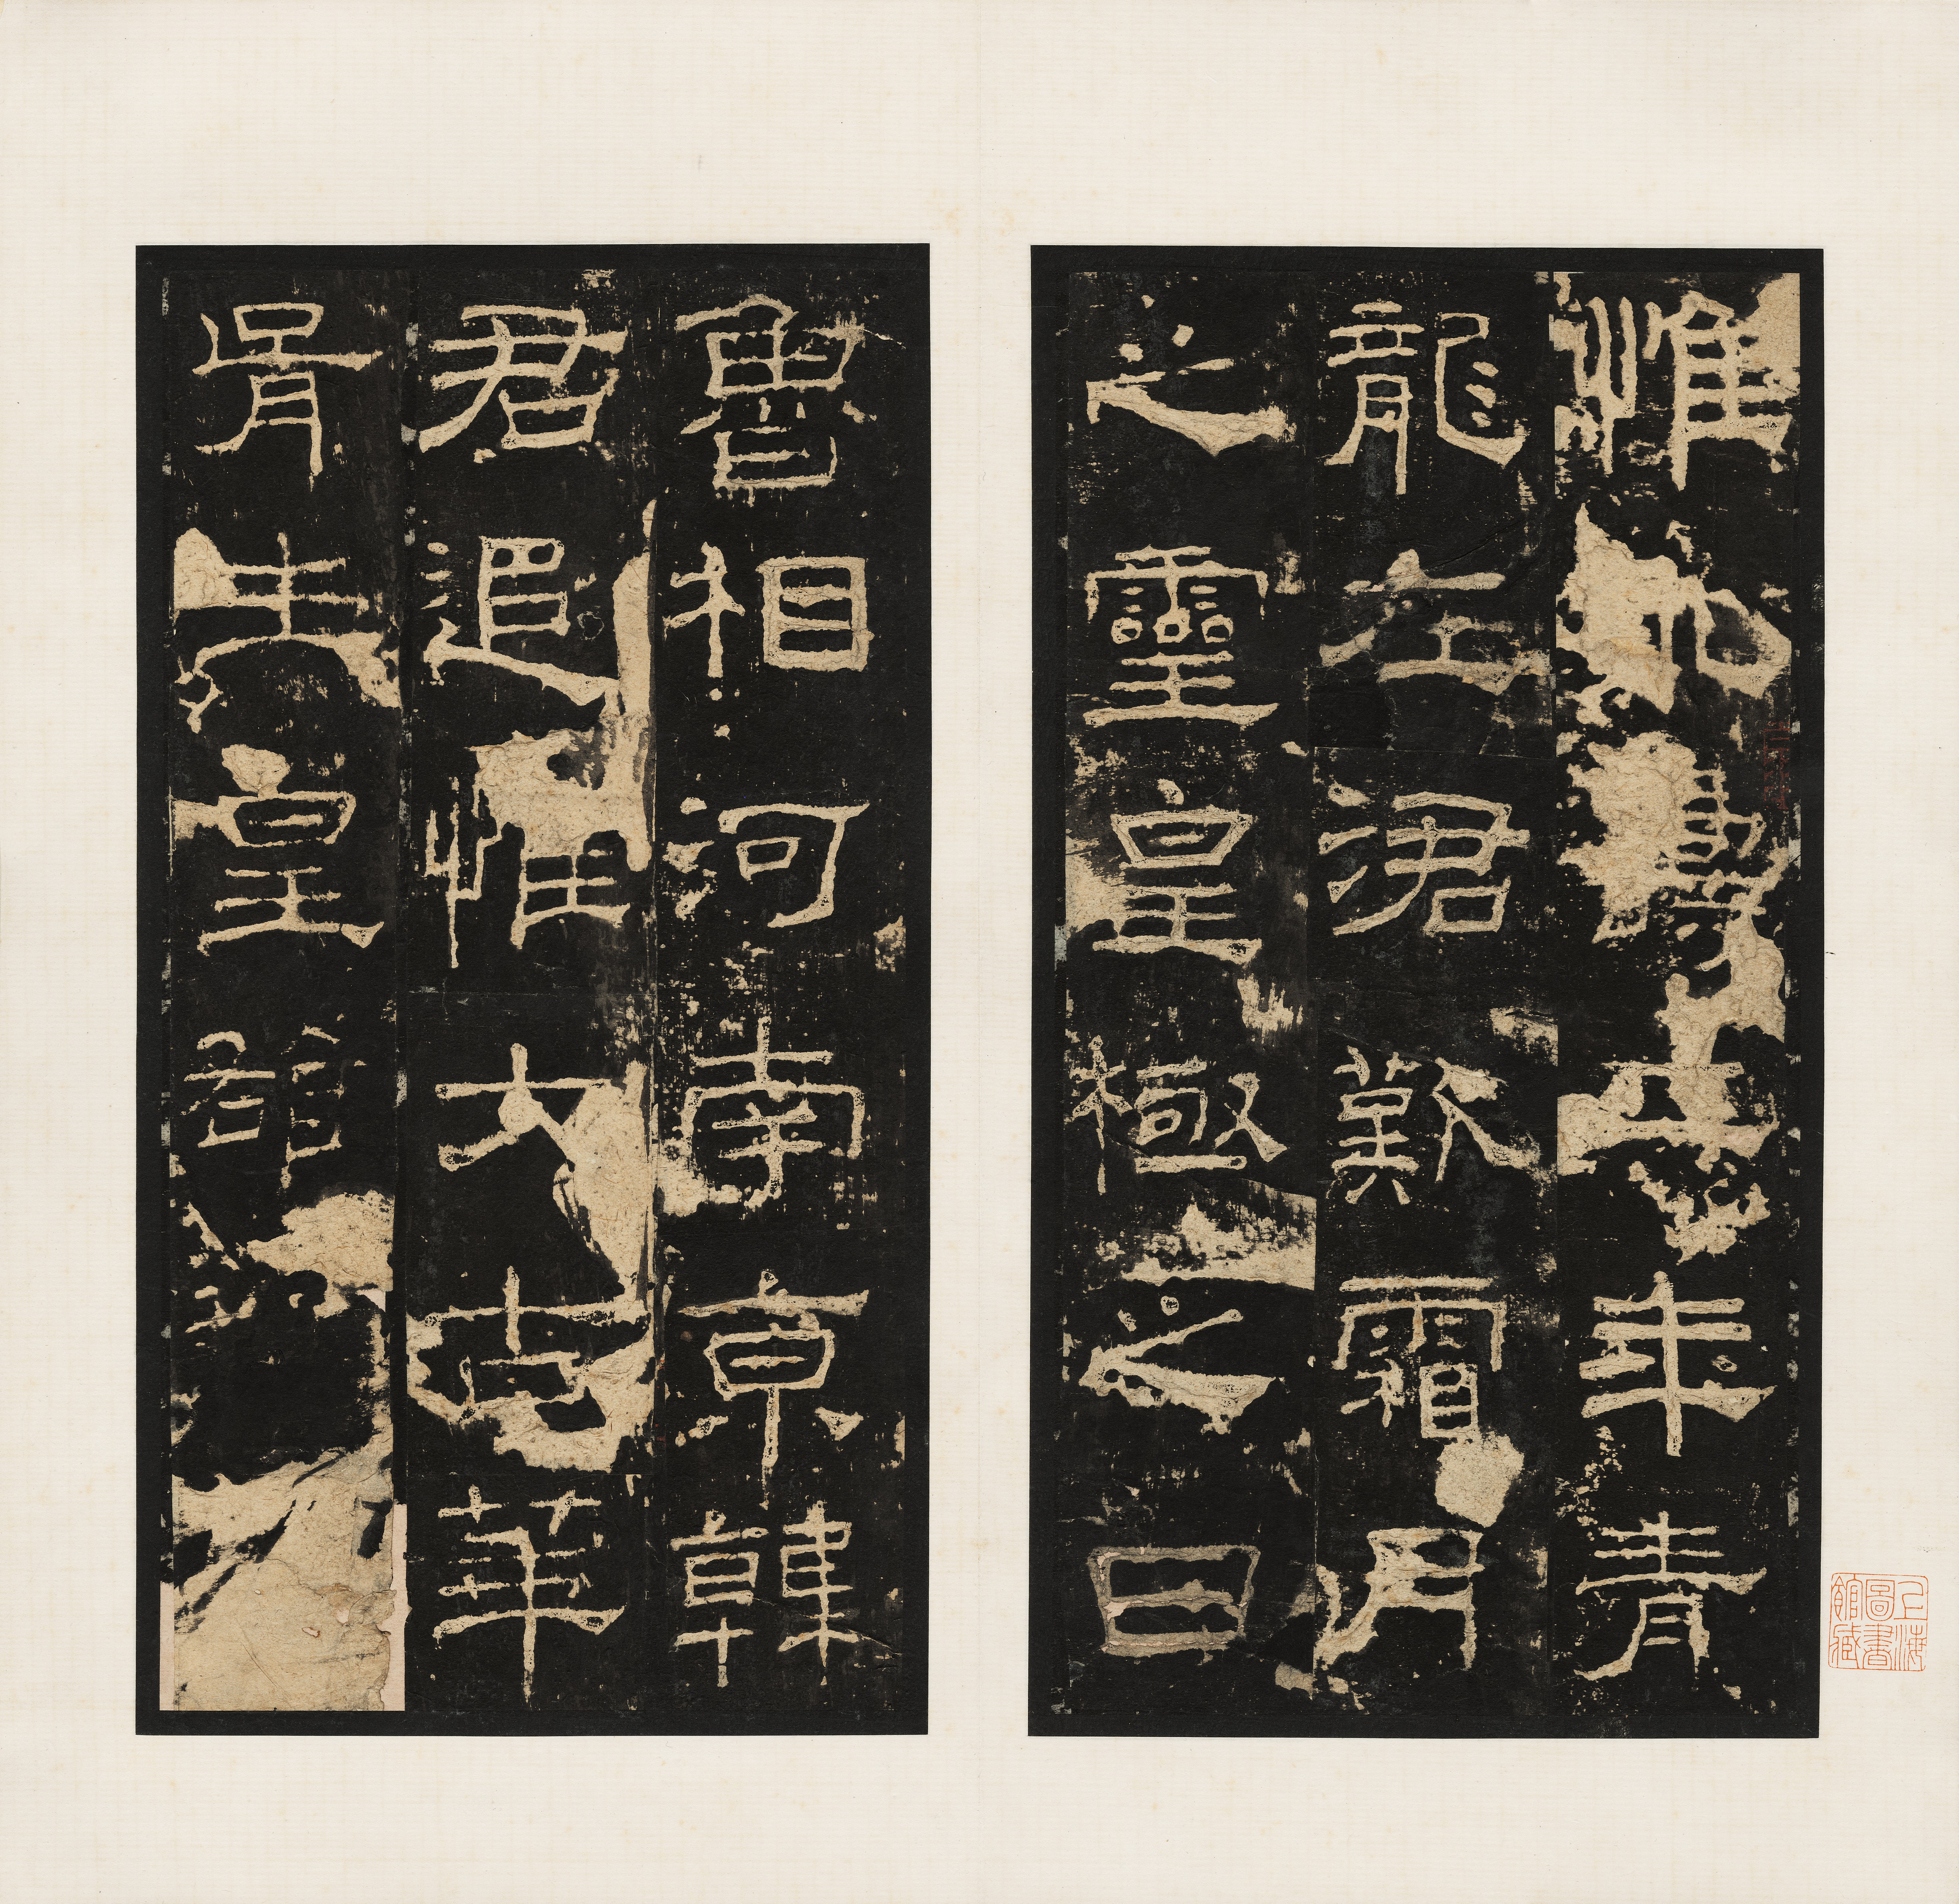 惟永壽二年青
龍在涒歎霜月
之靈皇極之日
魯相河南京韓
君追惟大古華
胥生皇
上海圖書館藏